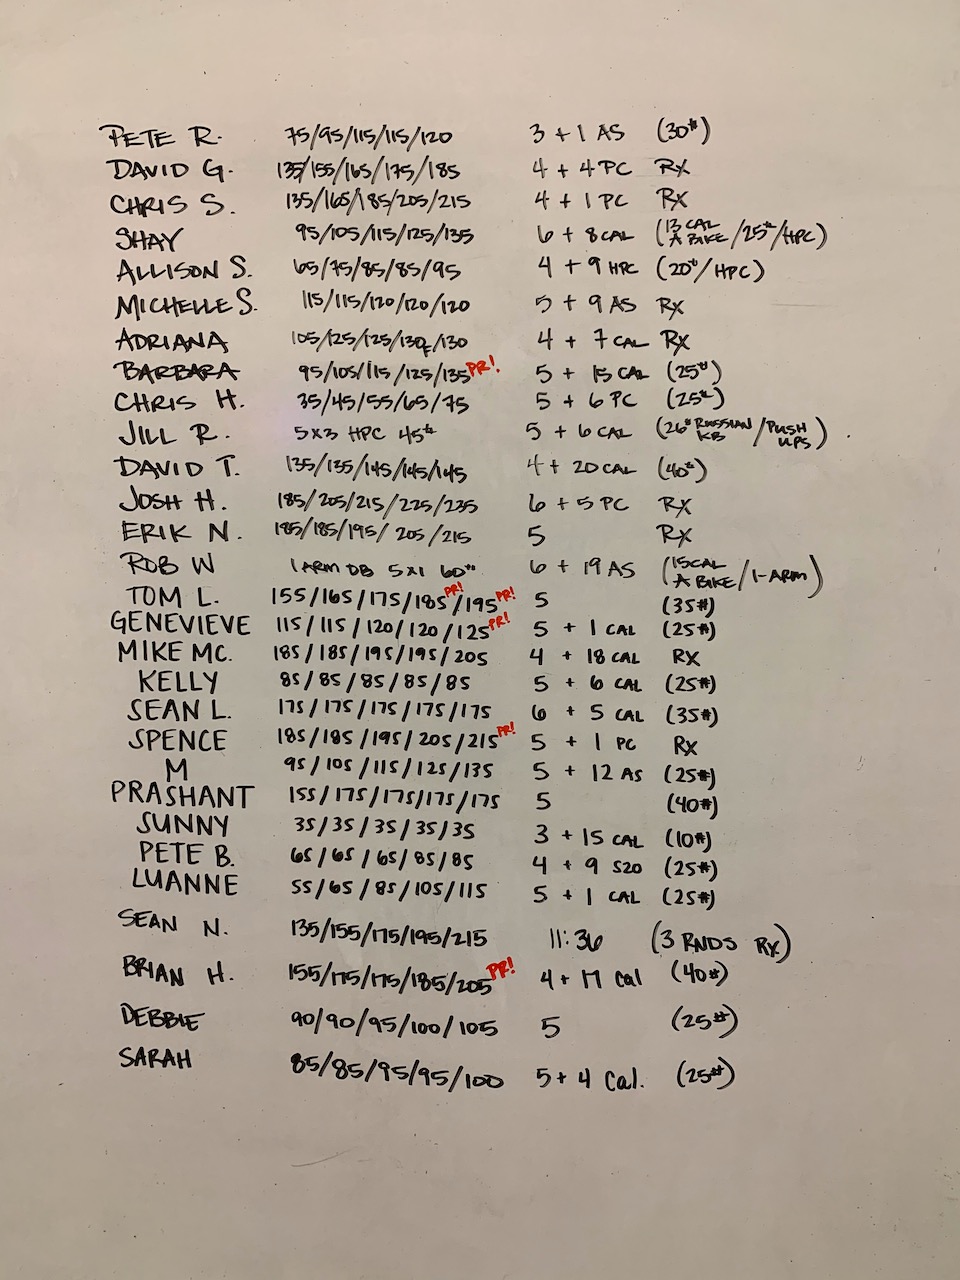 PETE R. 75/95/115/115/120 3 + 1 AS (30#)
DAVID G. 135/155/165/175/185 4 + 4 PC RX
CHRIS S. 135/165/185/205/215 4 + 1 PC RX
SHAY 95/105/115/125/135 6 + 8 CAL (13 CAL A BIKE/25#/HPC)
ALLISON S. 65/75/85/85/95 4 + 9 HPC (20#/HPC)
MICHELLE S. 115/115/120/120/120 5 + 9 AS RX
ADRIANA 105/125/125/130/130 4 + 7 CAL RX
BARBARA 95/105/115/125/135 PR! 5 + 15 CAL (25#)
CHRIS H. 35/45/55/65/75 5 + 6 PC (25#)
JILL R. 5x3 HPC 45# 5 + 6 CAL (26# RUSSIAN KB/PUSH UPS)
DAVID T. 135/135/145/145/145 4 + 20 CAL (40#)
JOSH H. 185/205/215/225/235 6 + 5 PC RX
ERIK N. 185/185/195/205/215 5 RX
ROB W 1 ARM DB 5x1 60# 6 + 19 AS (15 CAL A BIKE/1-ARM)
TOM L. 155/165/175/185 PR!/195 PR! 5 (35#)
GENEVIEVE 115/115/120/120/125 PR! 5 + 1 CAL (25#)
MIKE MC. 185/185/195/195/205 4 + 18 CAL RX
KELLY 85/85/85/85/85 5 + 6 CAL (25#)
SEAN L. 175/175/175/175/175 6 + 5 CAL (35#)
SPENCE 185/185/195/205/215 PR! 5 + 1 PC RX
M 95/105/115/125/135 5 + 12 AS (25#)
PRASHANT 155/175/175/175/175 5 (40#)
SUNNY 35/35/35/35/35 3 + 15 CAL (10#)
PETE B. 65/65/65/85/85 4 + 9 S2O (25#)
LUANNE 55/65/85/105/115 5 + 1 CAL (25#)
SEAN N. 135/155/175/195/215 11:36 (3 RNDS RX)
BRIAN H. 155/175/175/185/205 PR! 4 + 17 Cal (40#)
DEBBIE 90/90/95/100/105 5 (25#)
SARAH 85/85/95/95/100 5 + 4 Cal. (25#)